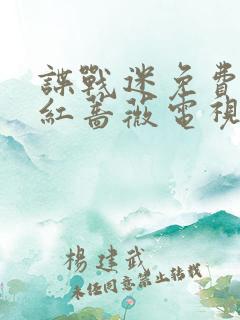 諜戰迷免費
紅薔薇電視
楊建武
未任同意禁止转载